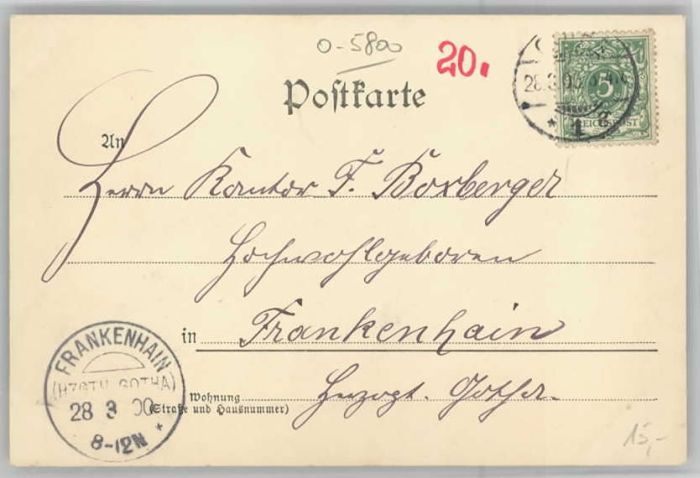 0-5800
20.
Postkarte
28.3.00
5
REICHSPOST
* 1 g
An
Herrn Kantor F. Boxberger
Hochwohlgeboren
in Frankenhain
Herzogt. Gotha.
Wohnung
(Straße und Hausnummer)
FRANKENHAIN
(HZGTH. GOTHA)
28 3 00
8-12N *
15,-